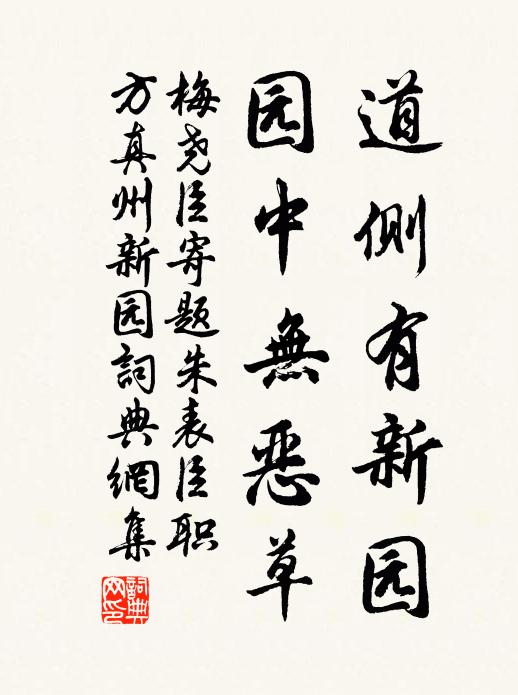 道侧有新园
园中無恶草
梅尧臣寄题朱表臣职
方真州新园詞典網集
詞典
网印